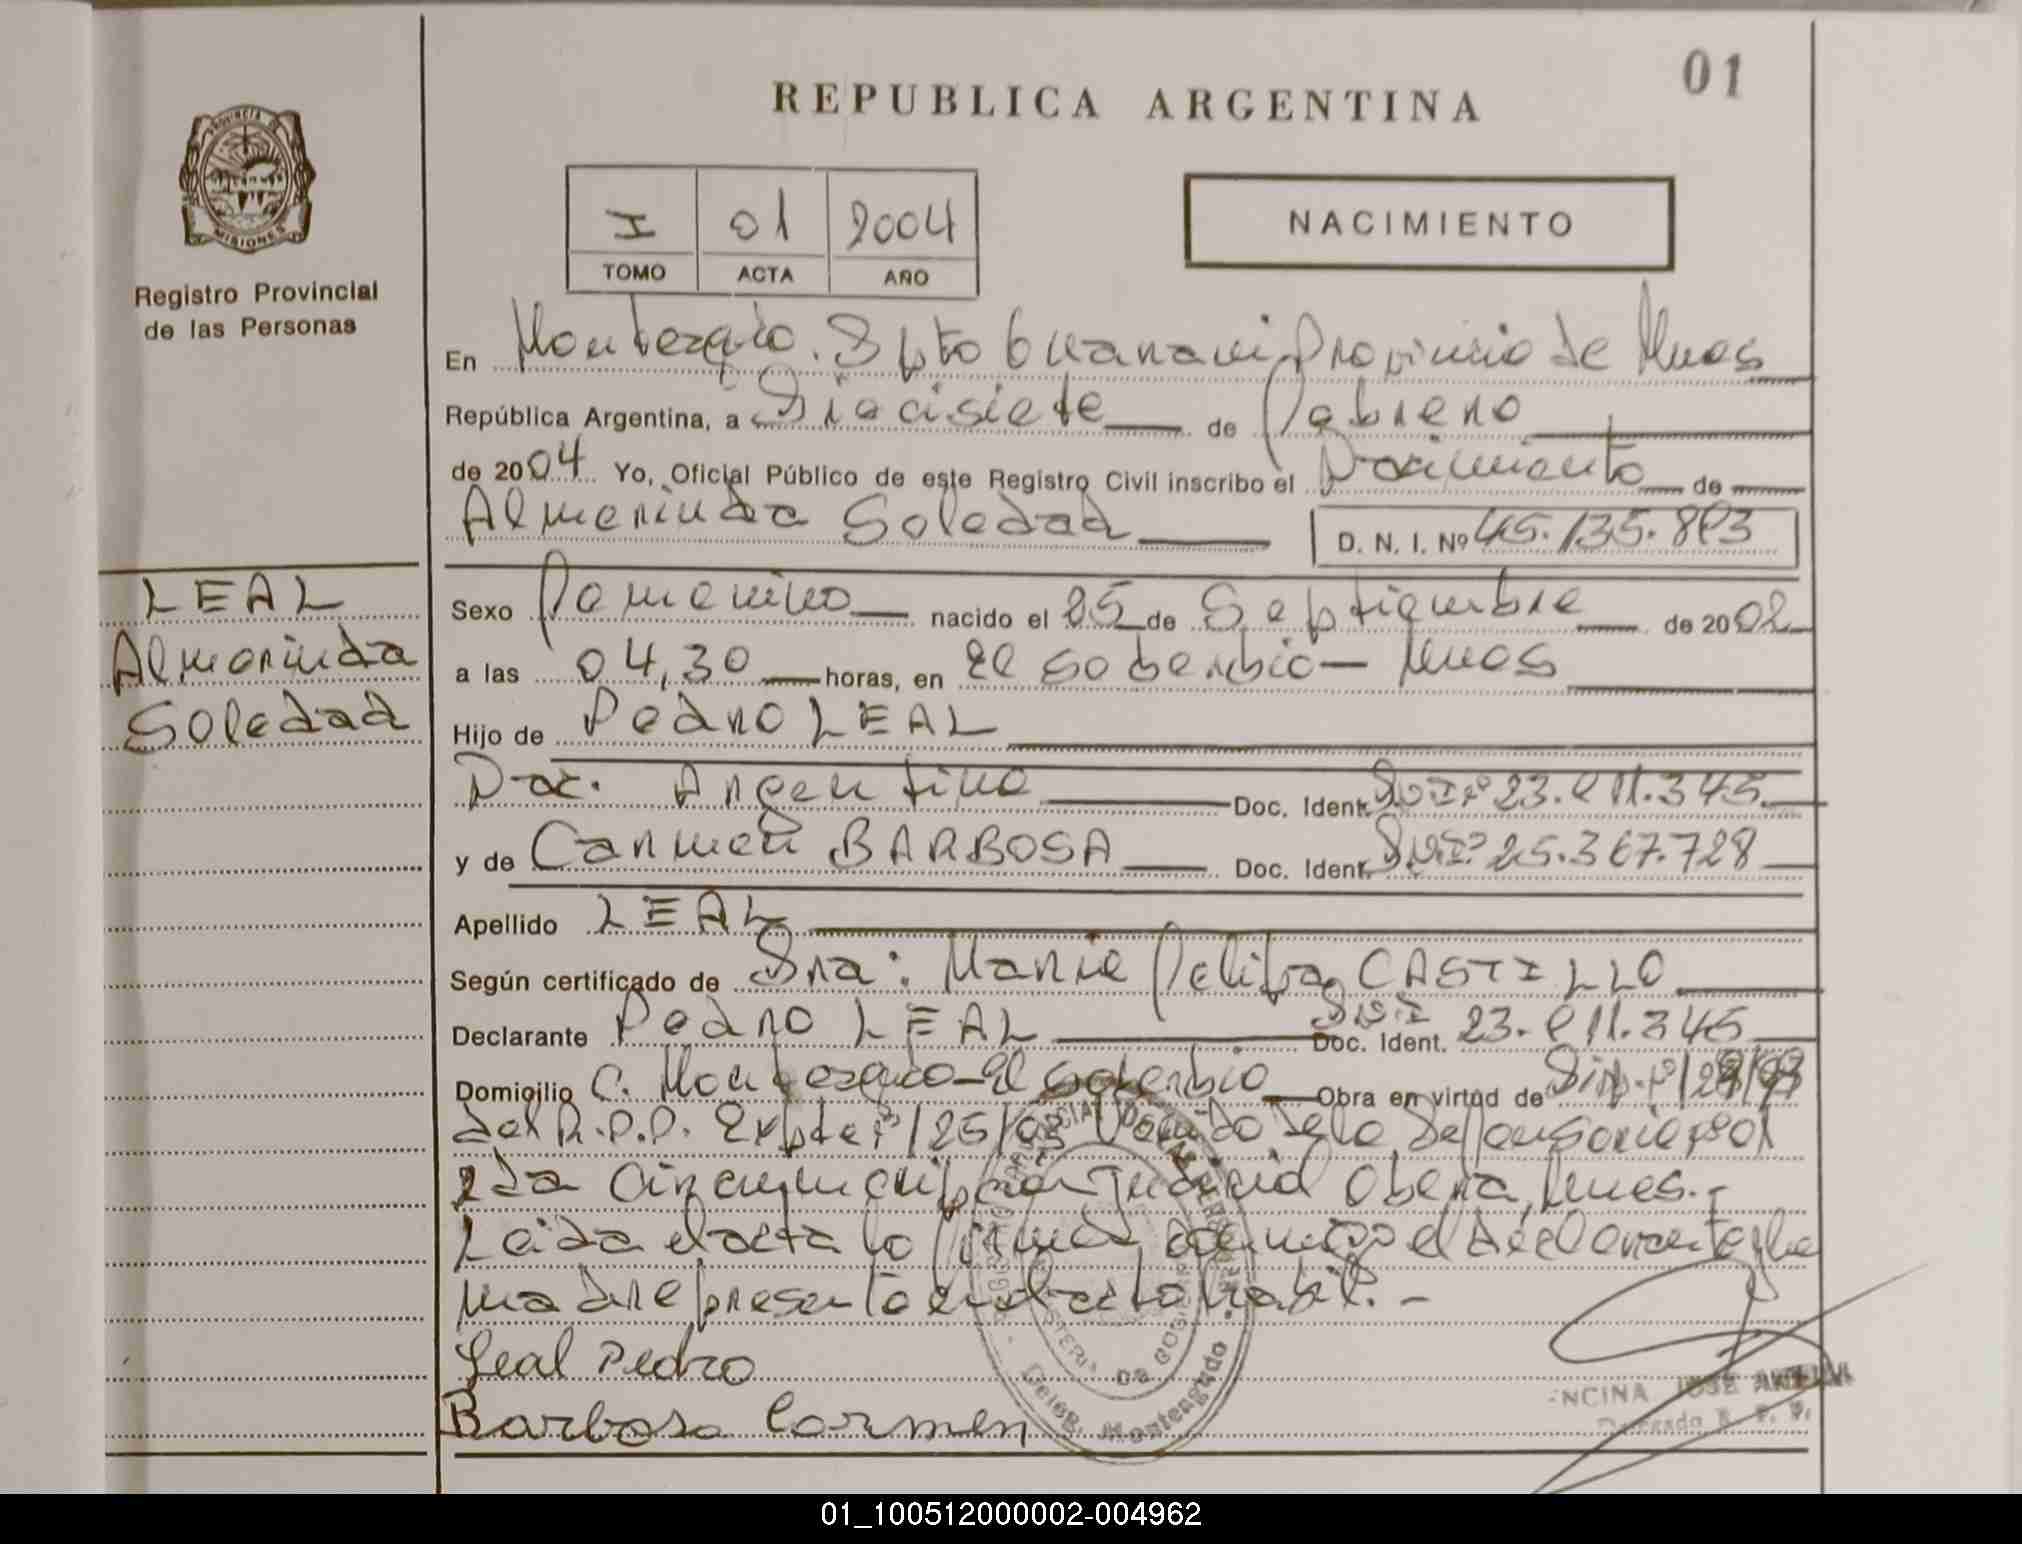 01
REPUBLICA ARGENTINA
PROVINCIA DE
MISIONES
Registro Provincial
de las Personas
I 01 2004
TOMO ACTA AÑO
NACIMIENTO
En Monteagdo. Dpto Guarani Provincia de Mnes
República Argentina, a Diecisiete de Febrero
de 2004 Yo, Oficial Público de este Registro Civil inscribo el Nacimiento de
Almerinda Soledad D. N. I. Nº 45.135.893
LEAL
Almerinda
Soledad
Sexo Femenino nacido el 25 de Septiembre de 2002
a las 04,30 horas, en El Soberbio - Mnes
Hijo de Pedro LEAL
Nac. Argentino Doc. Ident. DNI Nº 23.011.345
y de Carmen BARBOSA Doc. Ident. DNI Nº 25.367.728
Apellido LEAL
Según certificado de Sra: Maria Felipa CASTILLO
Declarante Pedro LEAL DNI Doc. Ident. 23.011.345
Domicilio C. Monteagdo - El Soberbio Obra en virtud de
del R.P.P. Expte Nº 125/03 de la Defensoria Nº 01
2da Circunscripcion Judicial Obera, Mnes.-
Leida el acta la firma conmigo el declarante y la
madre presente en el acto habil.-
Leal Pedro
Barbosa Carmen
Deleg. Monteagudo
ENCINA JOSE
Delegado R. P. P.
01_100512000002-004962